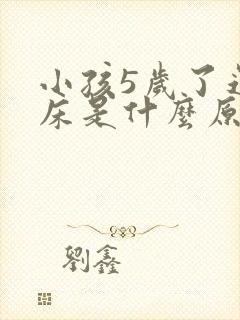 小孩5歲了
床是什麼原
劉鑫